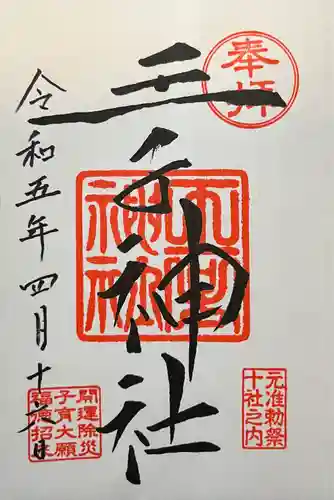 奉拝
王子神社
元准勅祭
十社之内
令和五年四月十六日
開運除災
子育大願
福徳招来